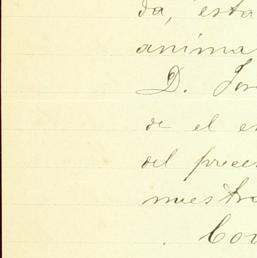 da, esta
anima
D. José
de el e
del prece
nuestra
Con